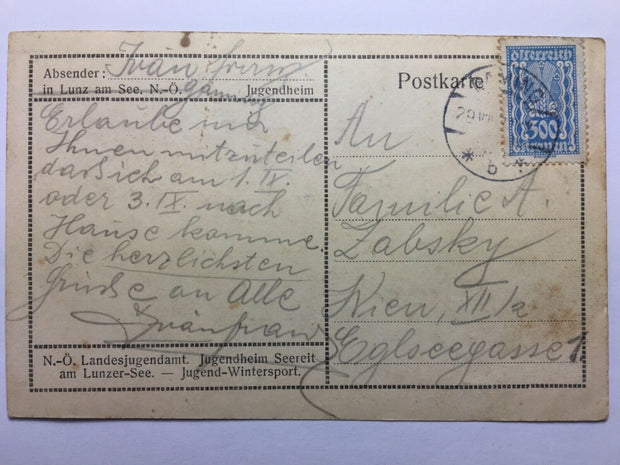 Absender: Iván
in Lunz am See, N.-Ö. Jugendheim
Gaming
Erlaube mir
Ihnen mitzuteilen
daß ich am 1. IX.
oder 3. IX. nach
Hause komme.
Die herzlichsten
Grüße an Alle
N.-Ö. Landesjugendamt. Jugendheim Seereit
am Lunzer-See. — Jugend-Wintersport.
Postkarte
österreich
300
29 VIII
* b *
An
Familie A.
Zabsky
Wien, XII/2
Eglseegasse 1